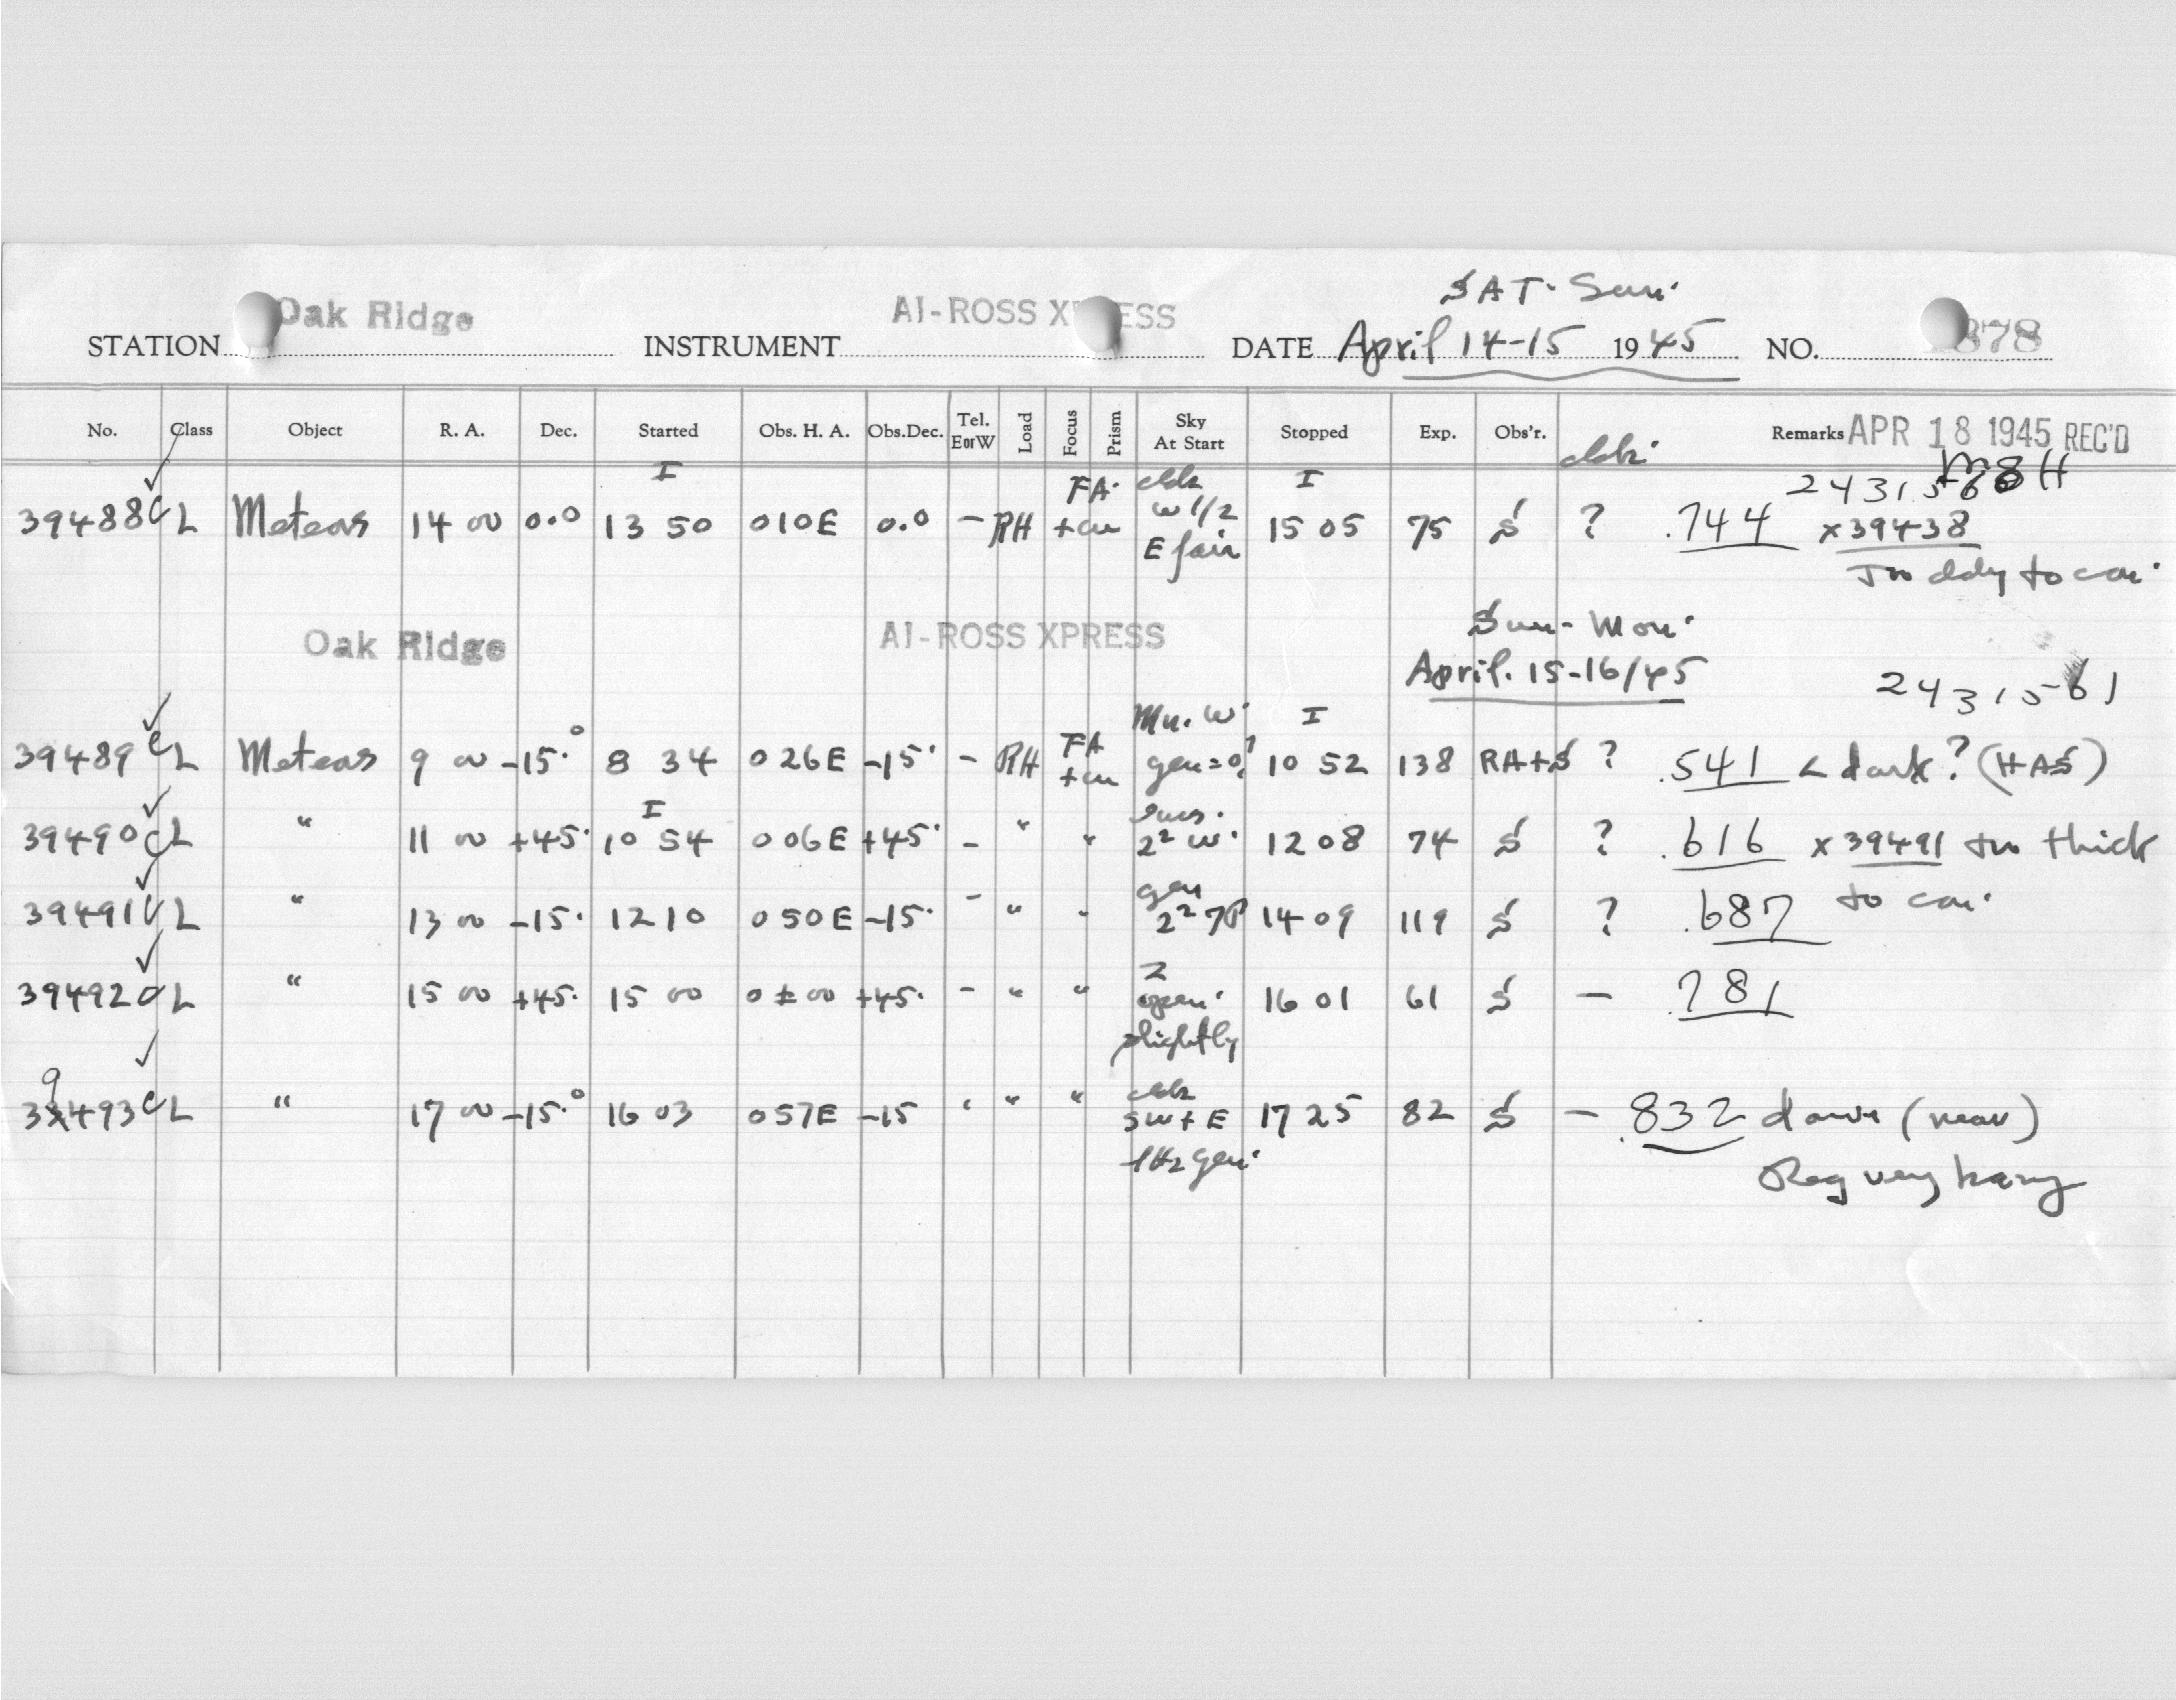 SAT. Sun.
STATION Oak Ridge INSTRUMENT AI-ROSS XPRESS DATE April 14-15 1945 NO. 878
No. Class Object R. A. Dec. Started Obs. H. A. Obs.Dec. Tel. EorW Load Focus Prism Sky At Start Stopped Exp. Obs'r. Remarks APR 18 1945 REC'D
I FA. I 2431560
39488 C L Meteors 14 00 0.0 13 50 010E 0.0 – RH W 1/2 15 05 75 S ? .744 x39438
E fair
Oak Ridge AI-ROSS XPRESS Sun-Mon.
April. 15-16/45 2431561
Mn. W. I
39489 C L Meteors 9 00 -15.° 8 34 026E -15. – RH FA gen=0? 10 52 138 RA+S ? .541 < dark? (HAS)
I
39490 C L " 11 00 +45. 10 54 006E +45. – " " 2² W. 12 08 74 S ? .616 x39491 too thick
gen
39491 C L " 13 00 -15. 12 10 050E -15. – " " 14 09 119 S ? .687 to
2
39492 C L " 15 00 +45. 15 00 0±00 +45. – " " gen. 16 01 61 S – .781
slightly
9
39493 C L " 17 00 -15.° 16 03 057E -15 " " " SW+E 17 25 82 S – .832 dawn (near)
gen.
Reg very